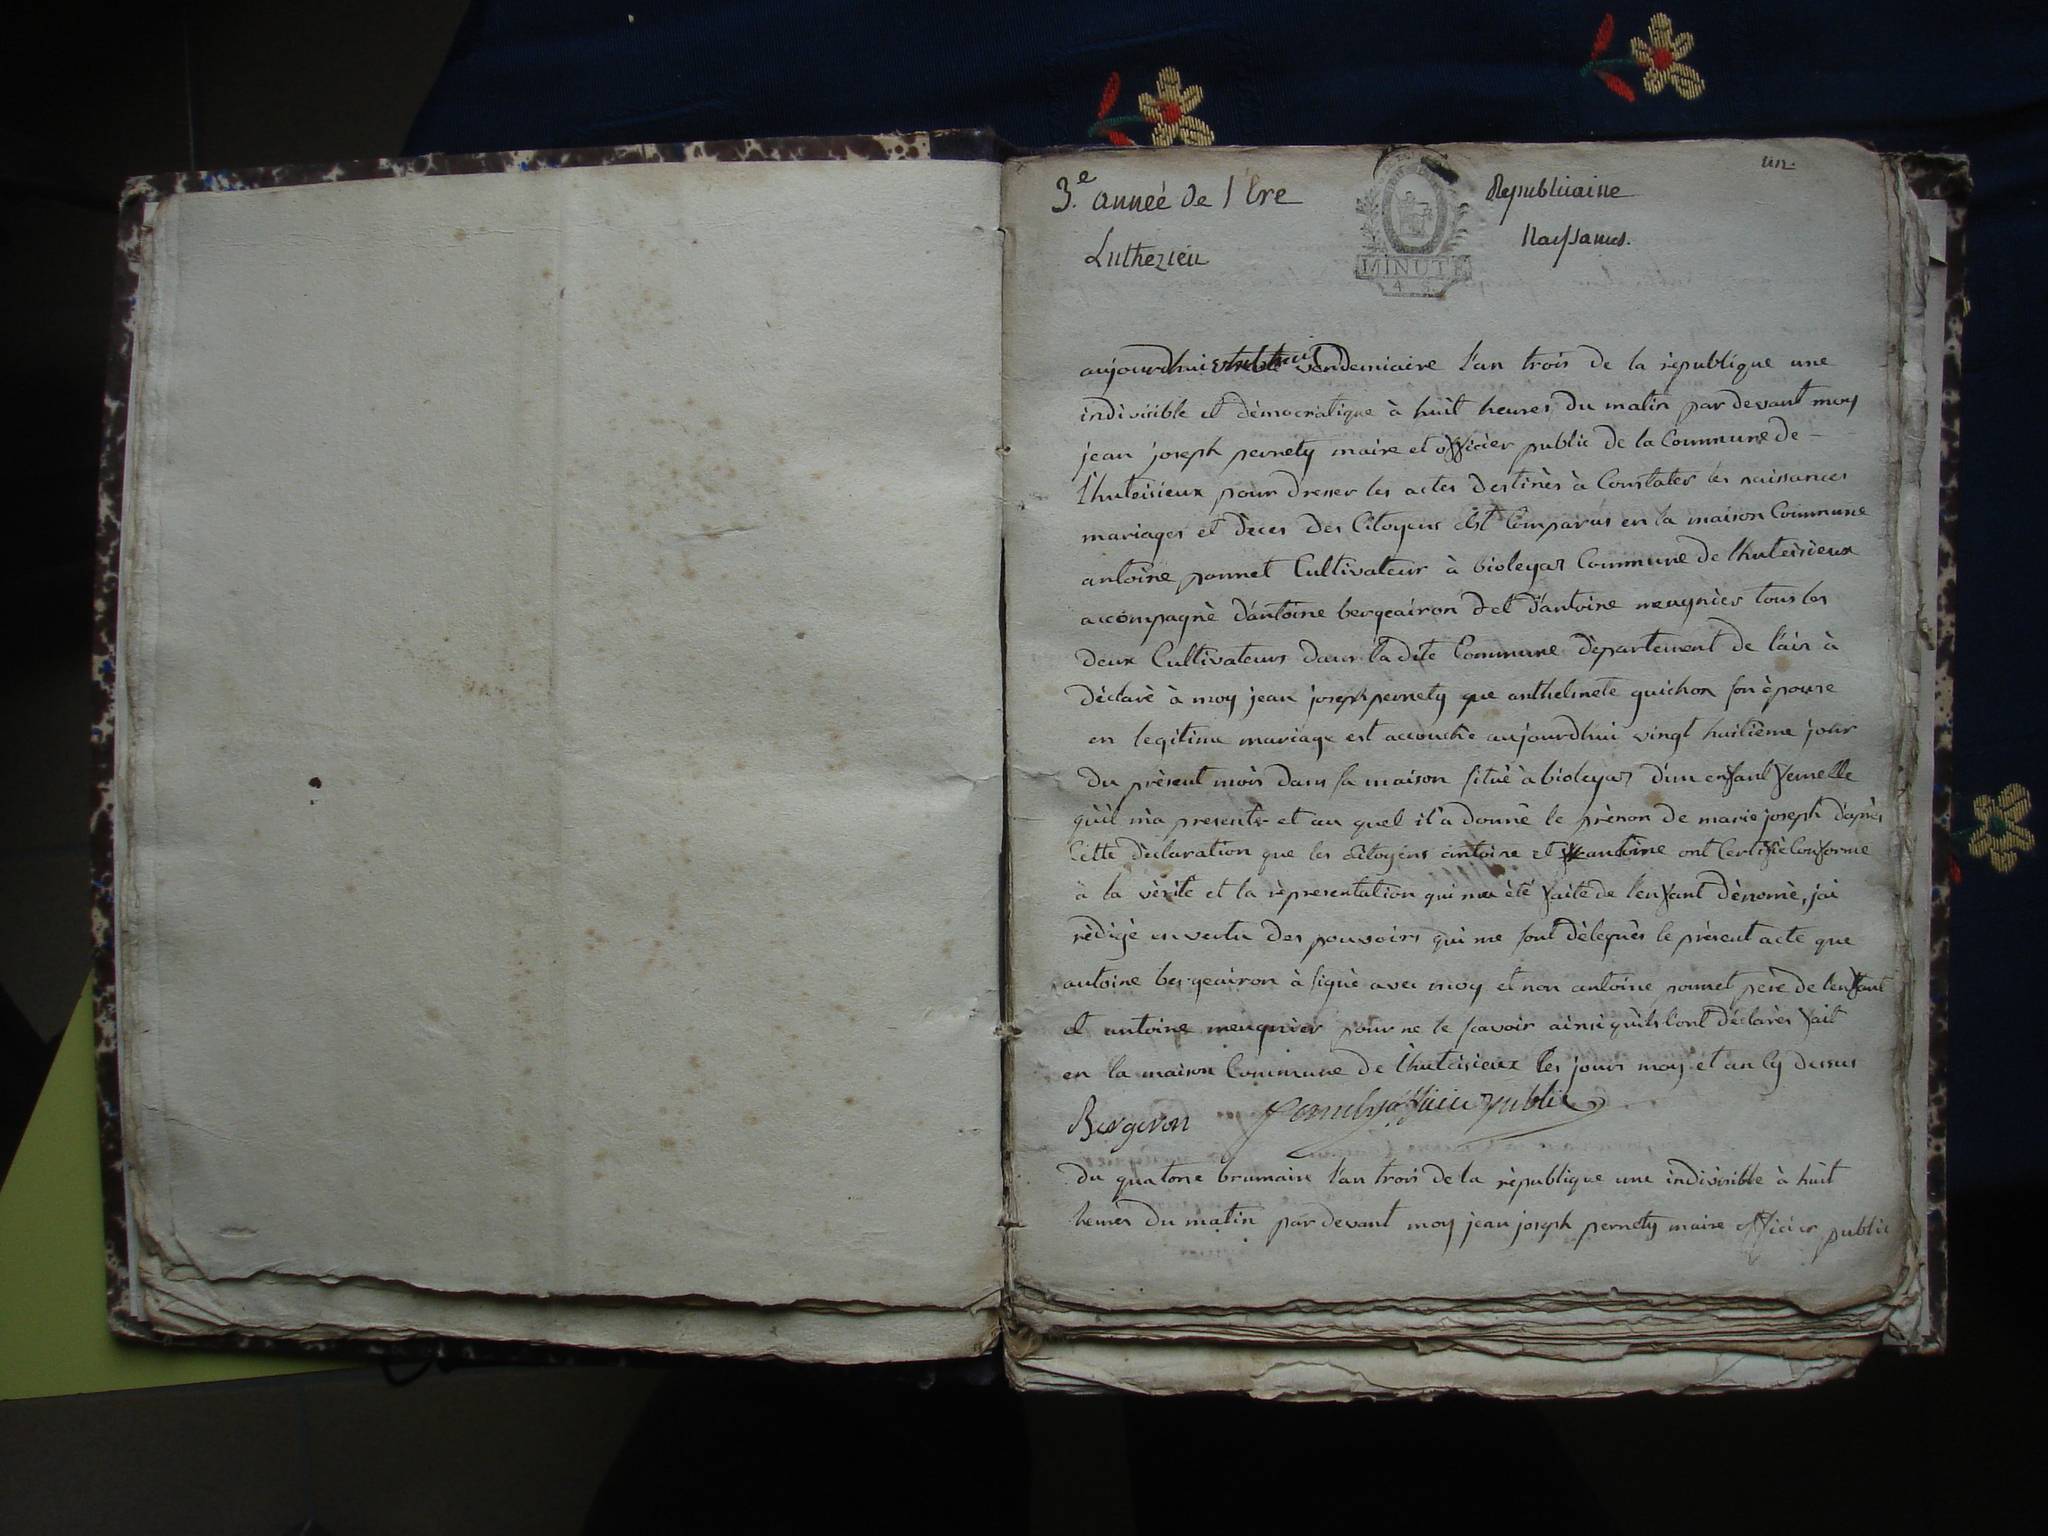 un.
3.e anneé de l'Ere Republicaine
Luthezieu Naissances.
MINUTE
aujourdhui vendemiaire l'an trois de la rèpublique une
indivisible et dèmocratique à huit heures du matin par devant moy
jean joseph pernety maire et officier public de la Commune de -
l'huteisieux pour dresser les actes destinès à Constater les naissances
mariages et dèces des Citoyens est Comparus en la maison Commune
antoine ponnet Cultivateur à bioleyaz Commune de lhuteisieux
accompagnè d'antoine bergeairon et d'antoine meugnier tous les
deux Cultivateurs dans la dite Commune dèpartement de l'ain à
dèclarè à moy jean joseph pernety que anthelmete guichon son èpouse
en legitime mariage est accouchèe aujourdhui vingt huitième jour
du prèsent mois dans sa maison situè à bioleyaz d'un enfant femelle
qu'il m'a presentè et au quel il a donnè le prènon de marie joseph d'après
Cette dèclaration que les citoyens antoine et antoine ont Certifiè Conforme
à la vèritè et la rèpresentation qui m'a été faite de l'enfant dènomè, jai
rèdigè en vertu des pouvoirs qui me sont dèleguès le prèsent acte que
antoine bergeairon à signè avec moy et non antoine ponnet père de l'enfant
et antoine meugnier pour ne le scavoir ainsi qu'ils l'ont déclarès fait
en la maison Commune de l'huteisieux les jours moy et an Cy dessus
Bergeron pernety officier public
du quatorse brumaire l'an trois de la rèpublique une indivisible à huit
heures du matin par devant moy jean joseph pernety maire officier public